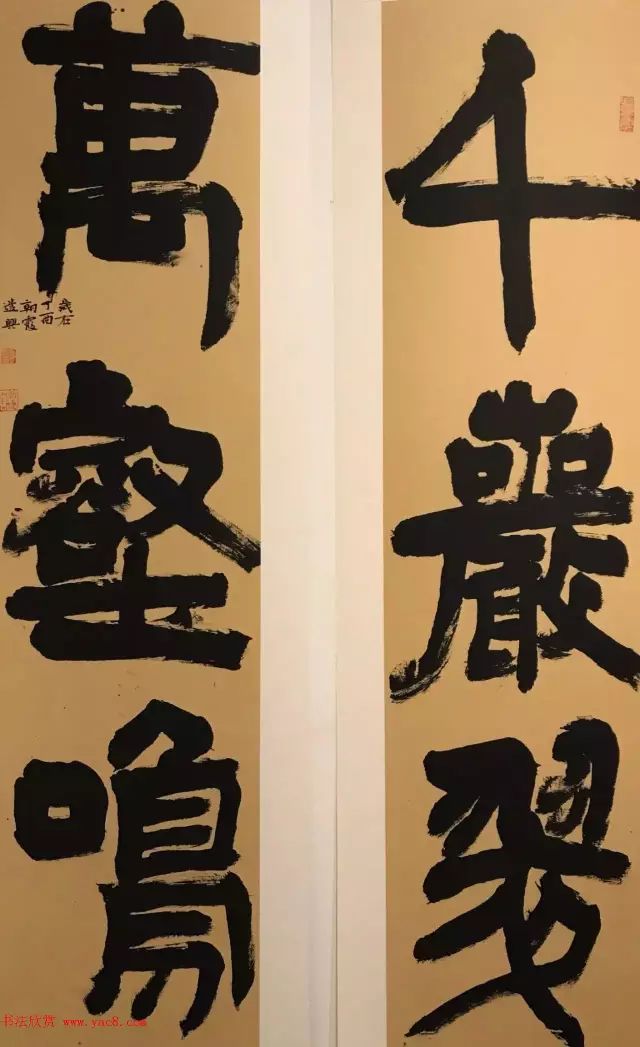 千巖翏
萬壑鳴
歲在
丁酉
朝霞
遣興
书法欣赏 www.yac8.com